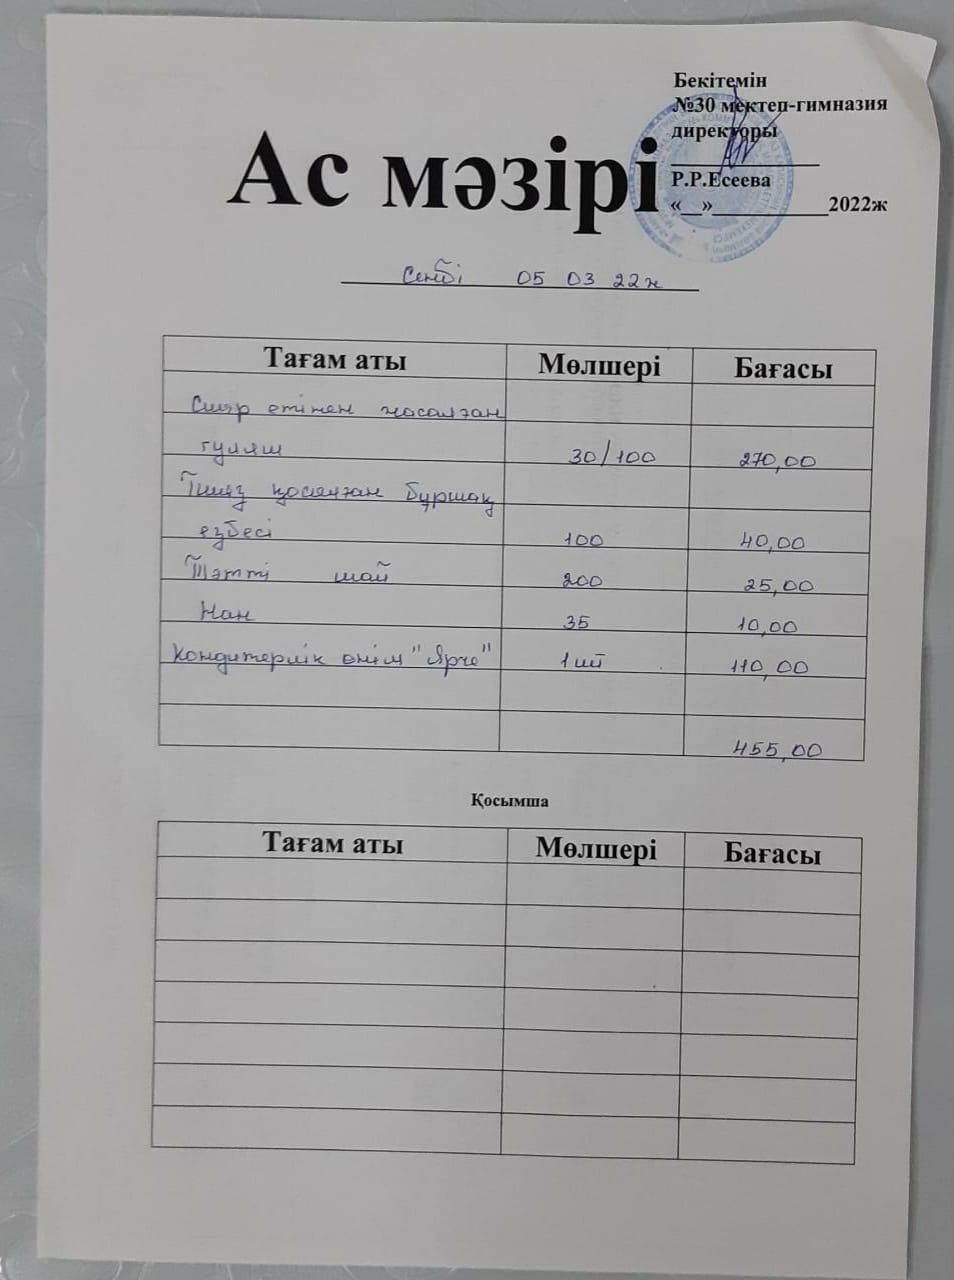 Бекітемін
№30 мектеп-гимназия
директоры
Р.Р.Есеева
«__»___________2022ж
Ас мәзірі
Сенбі 05 03 22ж
Тағам аты Мөлшері Бағасы
Сиыр етінен жасалған
гуляш 30/100 270,00
қосылған бұршақ
езбесі 100 40,00
Тәтті шай 200 25,00
Нан 35 10,00
Кондитерлік өнім "Ярче" 1 шт 110,00
455,00
Қосымша
Тағам аты Мөлшері Бағасы